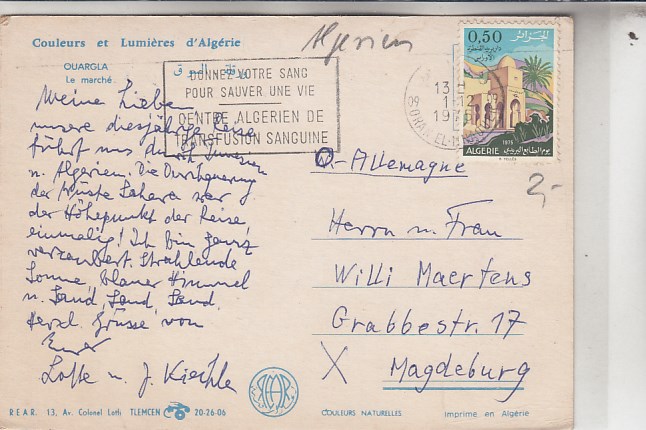 Couleurs et Lumières d'Algérie
Algerien
OUARGLA
Le marché
DONNEZ VOTRE SANG
POUR SAUVER UNE VIE
CENTRE ALGERIEN DE
TRANSFUSION SANGUINE
13
1-12
0,50
الجزائر
1975
ALGERIE
2,-
Meine Lieben
unsere diesjährige Reise
führt uns durch Tunesien
u. Algerien. Die Durchquerung
der Wüste Sahara war
der Höhepunkt der Reise,
einmalig! Ich bin ganz
verzaubert. Strahlende
Sonne, blauer Himmel
u. Sand, Sand, Sand.
Herzl. Grüsse von
Eurer
Lotte u. J.
D.-Allemagne
Herrn u. Frau
Willi Maertens
Grabbestr. 17
X Magdeburg
R.E.A.R. 13, Av. Colonel Lotfi TLEMCEN 20-26-06
COULEURS NATURELLES
Imprimé en Algérie